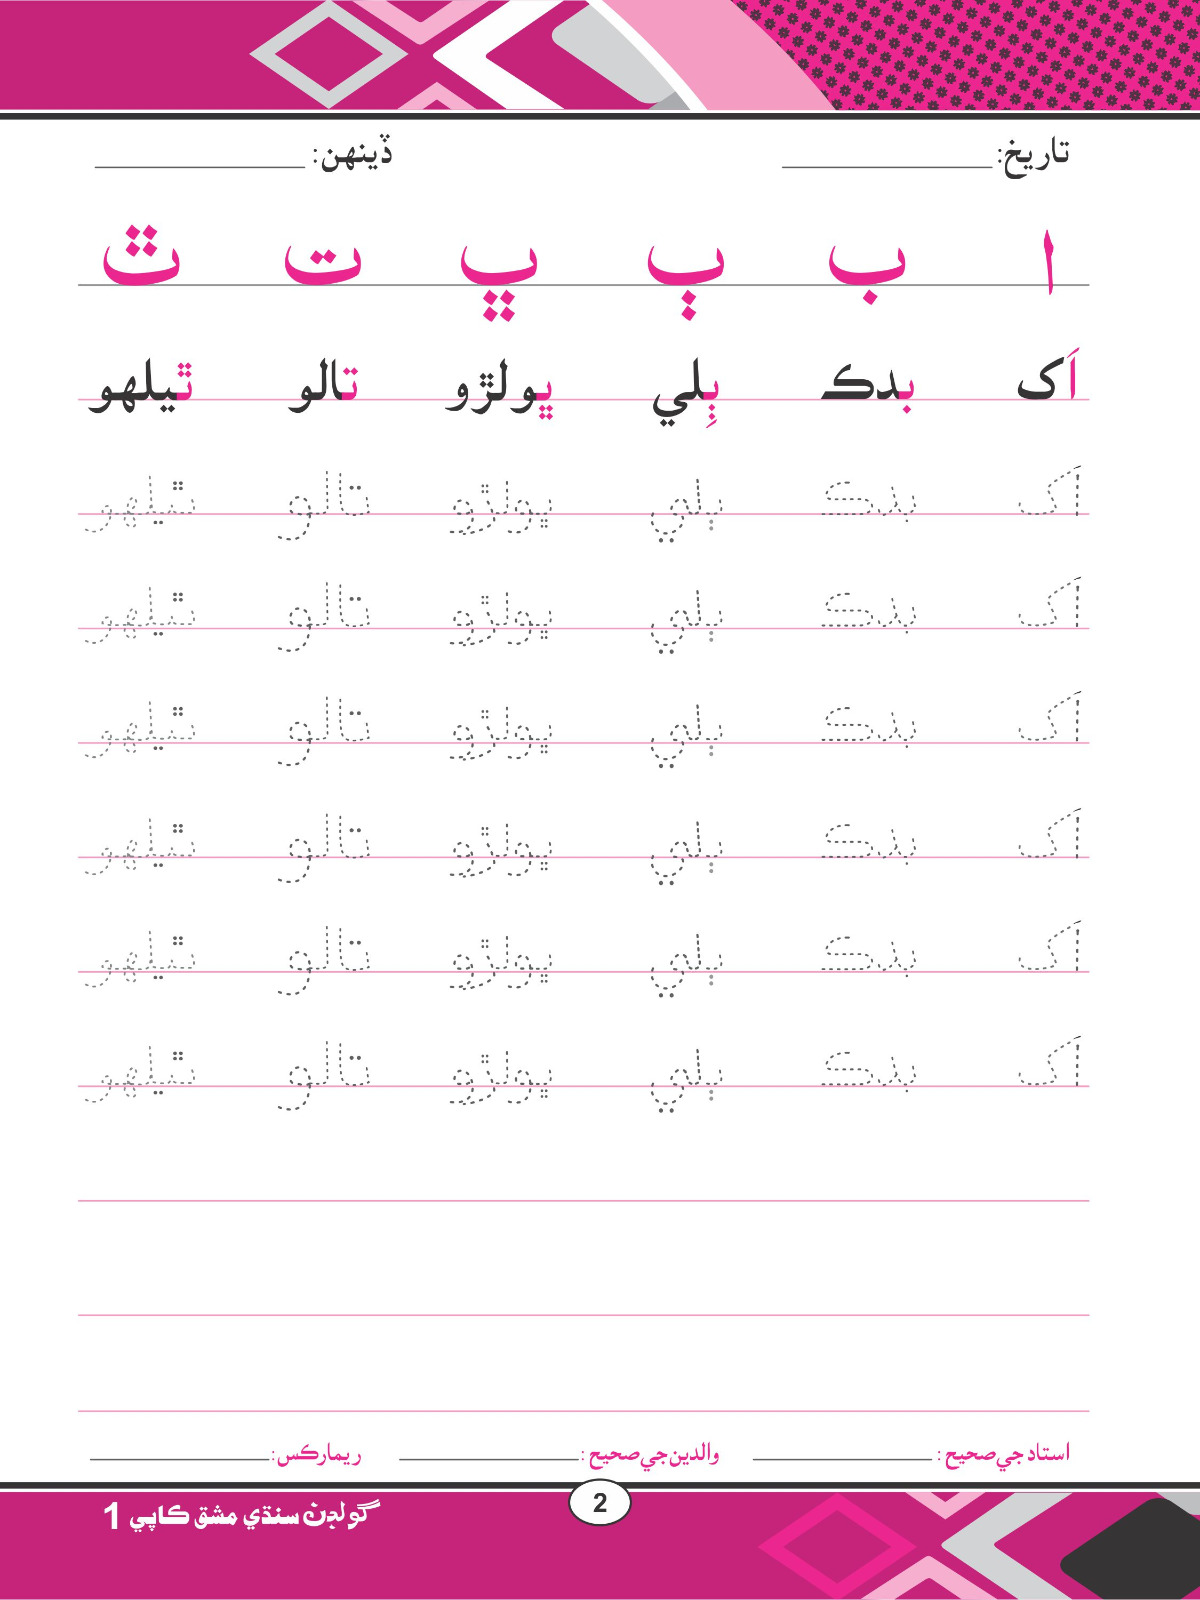 تاريخ: ڏينهن:
ا ب ٻ ڀ ت ٿ
اَک بدڪ ٻِلي ڀولڙو تالو ٿيلهو
اک بدڪ ٻلي ڀولڙو تالو ٿيلهو
اک بدڪ ٻلي ڀولڙو تالو ٿيلهو
اک بدڪ ٻلي ڀولڙو تالو ٿيلهو
اک بدڪ ٻلي ڀولڙو تالو ٿيلهو
اک بدڪ ٻلي ڀولڙو تالو ٿيلهو
اک بدڪ ٻلي ڀولڙو تالو ٿيلهو
استاد جي صحيح : والدين جي صحيح : ريمارڪس :
2
گولڊن سنڌي مشق ڪاپي 1